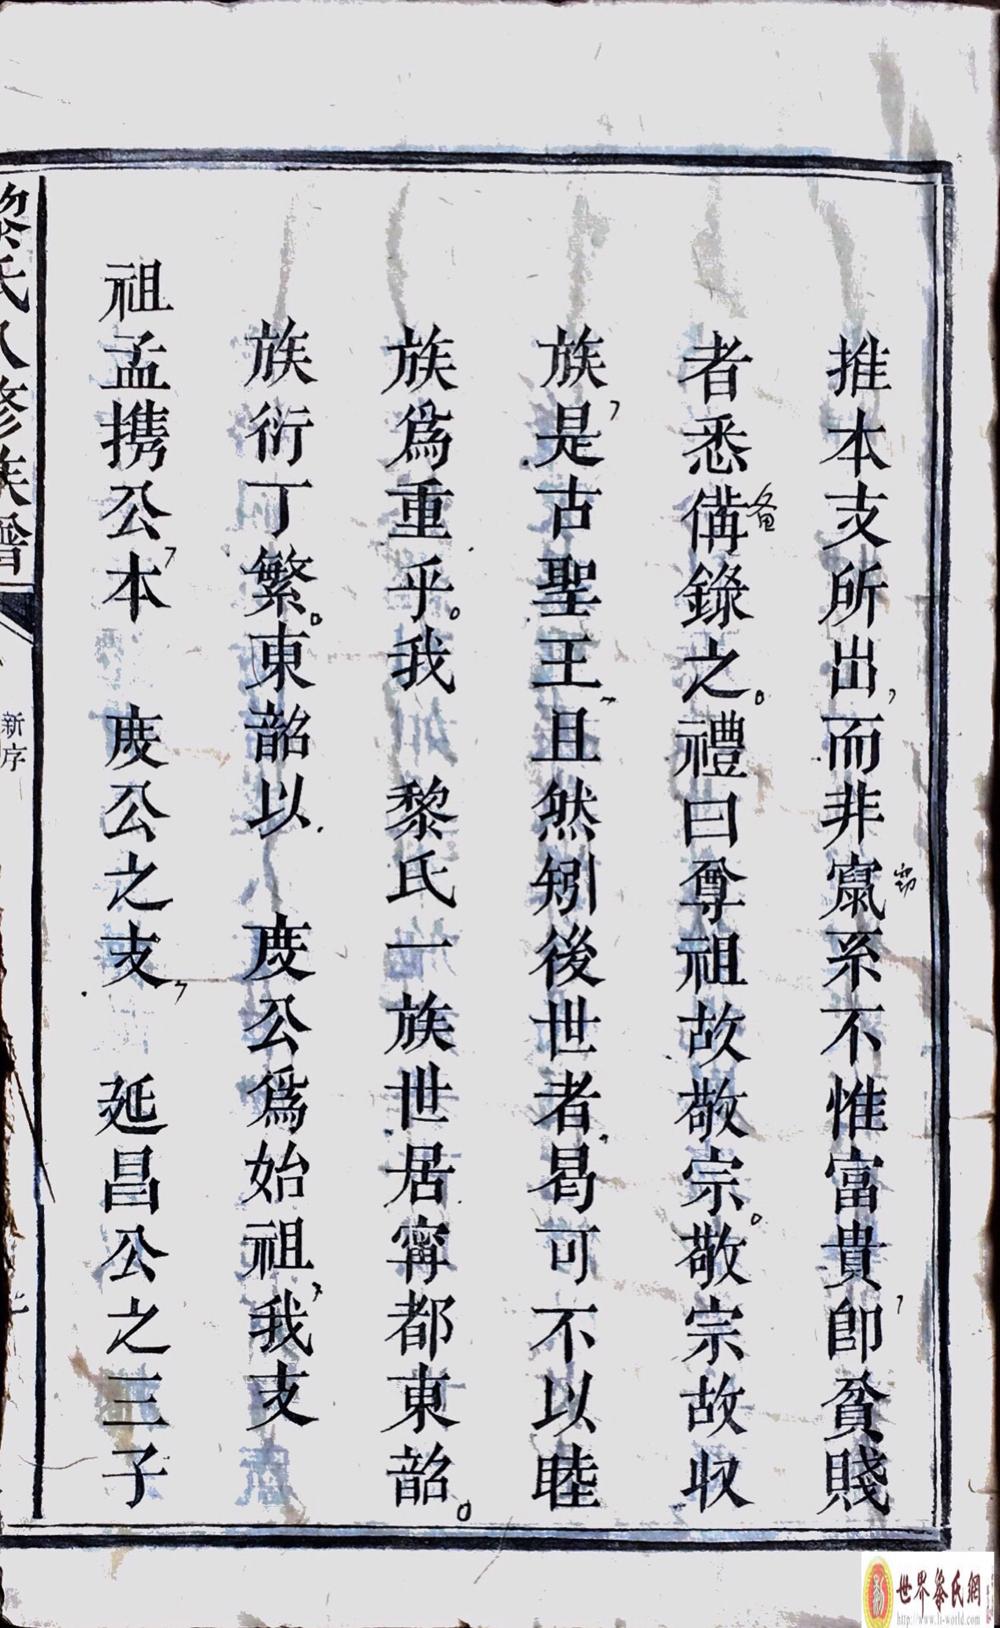 推本支所出，而非竄系不惟富貴，卽貧賤
窃
者悉備錄之。禮曰尊祖故敬宗。敬宗故収
备
族，是古聖王且然矧後世者曷可不以睦
族爲重乎。我 黎氏一族世居甯都東韶。
族衍丁繁。東韶以 度公爲始祖，我支
祖孟携公本， 度公之支， 延昌公之三子
黎氏八修族譜
新序
世界黎氏網
http://www.li-world.com